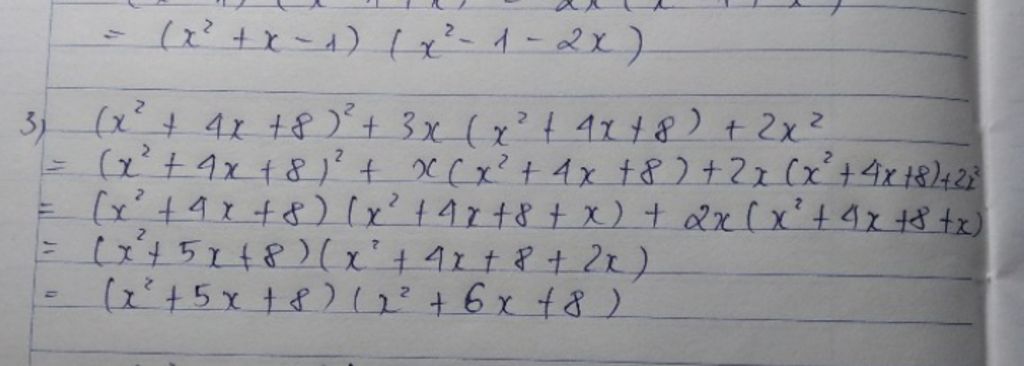 = (x² + x - 1) (x² - 1 - 2x)
3) (x² + 4x + 8)² + 3x (x² + 4x + 8) + 2x²
= (x² + 4x + 8)² + x(x² + 4x + 8) + 2x (x² + 4x + 8) + 2x²
= (x² + 4x + 8) (x² + 4x + 8 + x) + 2x (x² + 4x + 8 + x)
= (x² + 5x + 8) (x² + 4x + 8 + 2x)
= (x² + 5x + 8) (x² + 6x + 8)